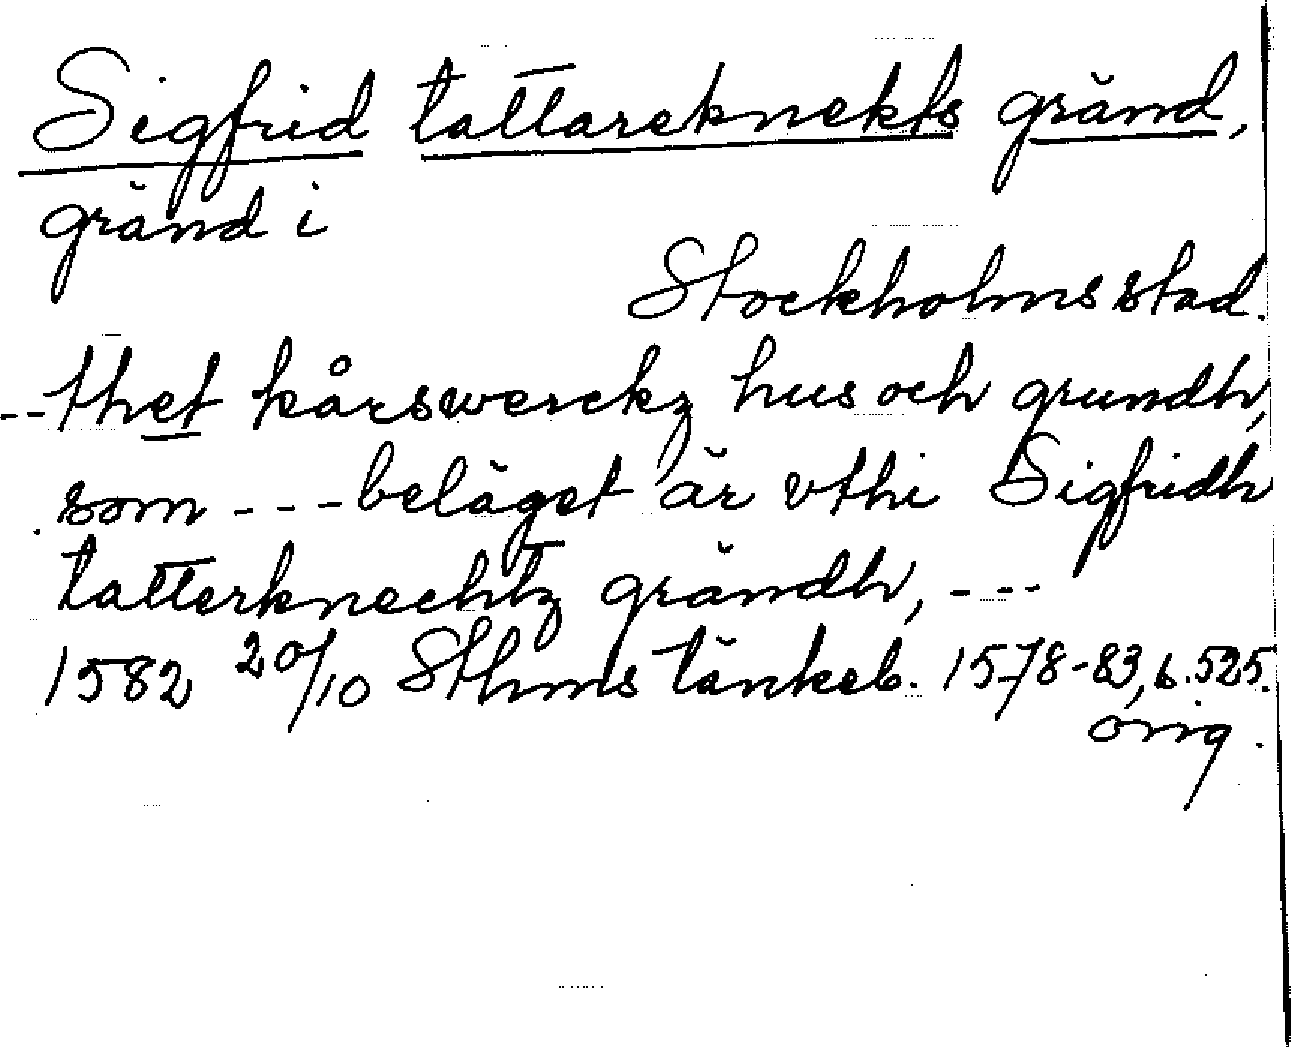 Sigfrid tattareknekts gränd,
gränd i
Stockholms stad.
-- thet kårswerckz hus och grundh,
som --- beläget är vthi Sigfridh
tatterknechtz grändh, ---
1582 20/10 Sthms tänkeb. 1578-83, b. 525.
orig.